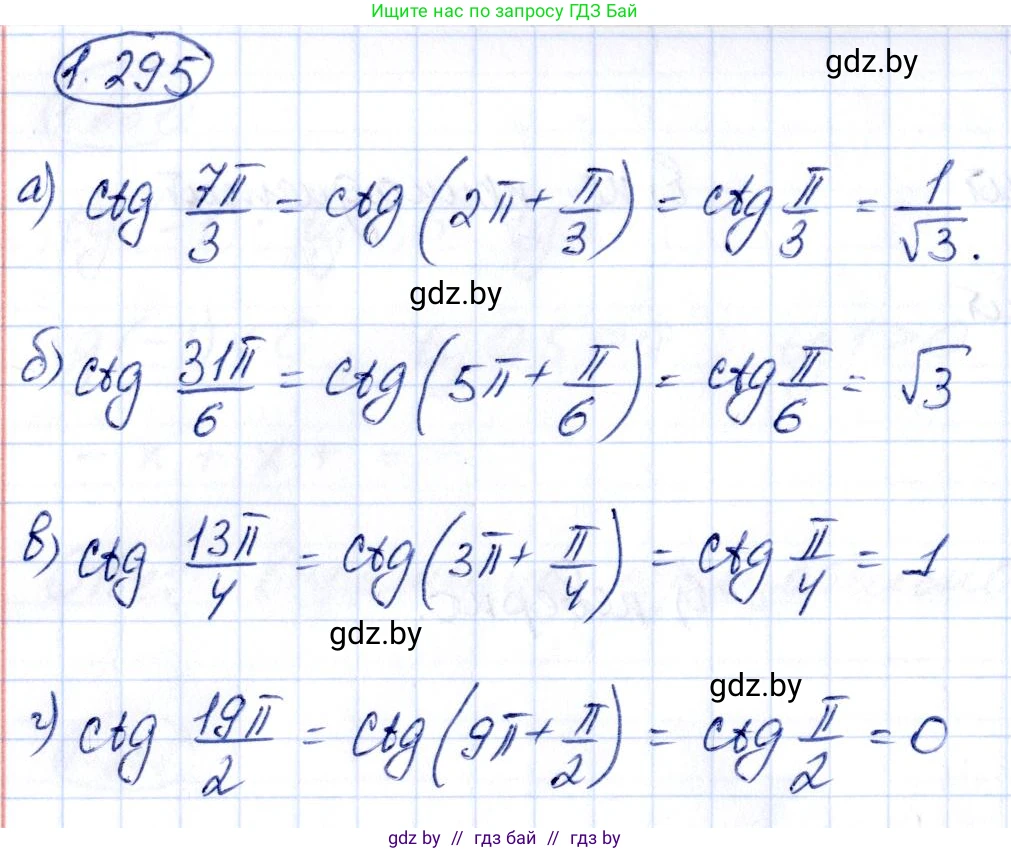 Ищите нас по запросу ГДЗ Бай
1.295
gdz.by
а) ctg 7π/3 = ctg (2π + π/3) = ctg π/3 = 1/√3.
gdz.by
б) ctg 31π/6 = ctg (5π + π/6) = ctg π/6 = √3
в) ctg 13π/4 = ctg (3π + π/4) = ctg π/4 = 1
gdz.by
gdz.by
г) ctg 19π/2 = ctg (9π + π/2) = ctg π/2 = 0
gdz by // гдз бай // гдз by